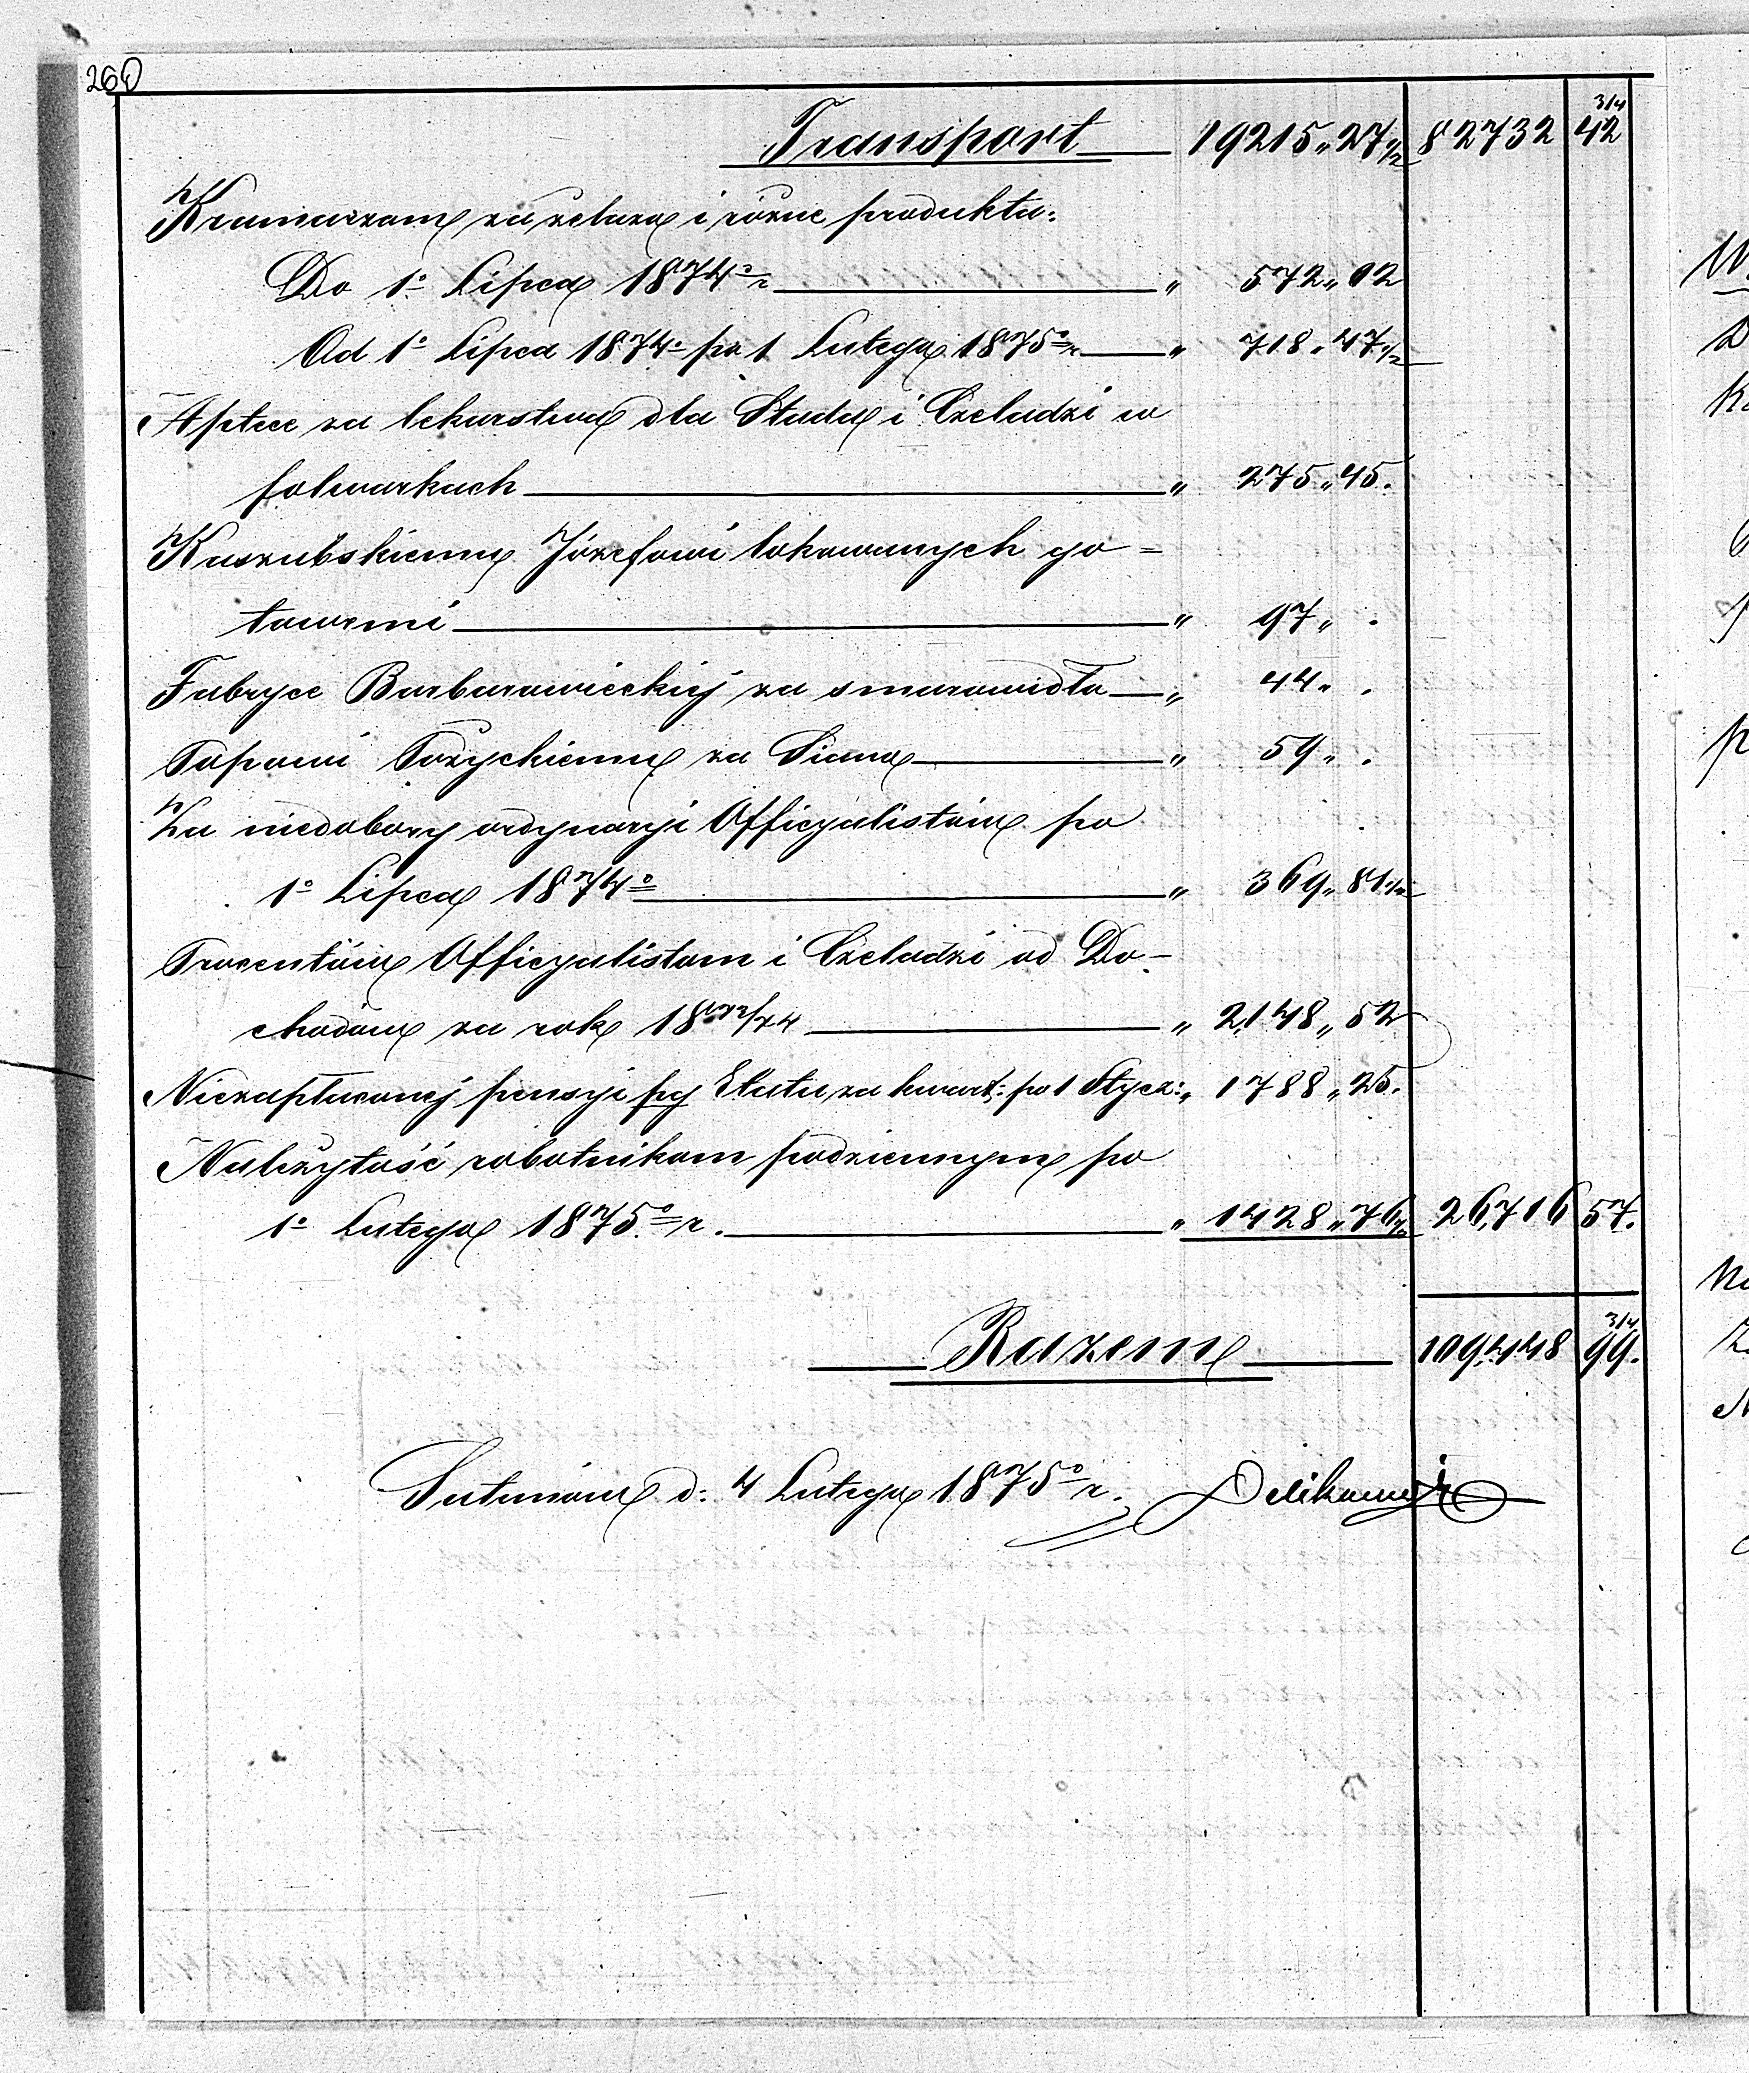 260
Transport 19215 „ 27 1/2 82732 42 3/4
Kramarzom za żelazo i różne produkta:
Do 1º Lipca 1874º r „ 572 „ 02
Od 1º Lipca 1874º po 1 Lutego 1875º r „ 718 „ 47 1/2
Aptece za lekarstwa dla Stada i Czeladzi w
folwarkach „ 275 „ 45.
Kaszubskiemu Józefowi lokowanych go=
towizni „ 97 „ .
Fabryce Barbarowieckiej za smarowidła „ 44 „ .
Popowi Tożyckiemu za Siano „ 59 „ .
Za niedobory ordynaryi Officyalistów po
1º Lipca 1874º „ 369 „ 81 1/2
Procentów Officyalistom i Czeladzi od Do-
chodów za rok 1873/74 „ 2,148 „ 52
Niezapłaconej pensyi pg Etatu za kwart: po 1 Stycz: „ 1788 „ 25.
Należytość robotnikom podziennym po
1º Lutego 1875º r. „ 1428 „ 76 1/2 26,716 57.
Razem 109,448 99. 3/4
d: 4 Lutego 1875º r.